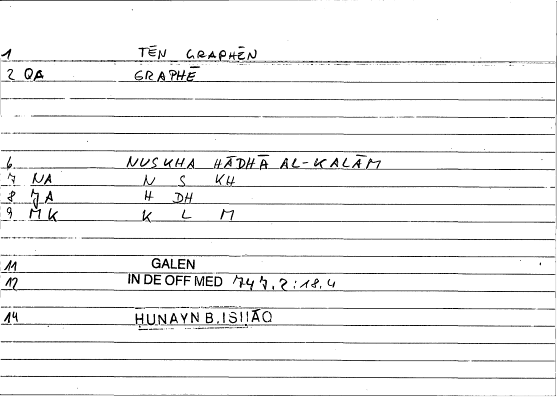 1 TĒN GRAPHĒN
2 QA GRAPHĒ
6 NUSKHA HĀDHĀ AL-KALĀM
7 NA N S KH
8 JA H DH
9 MK K L M
11 GALEN
12 IN DE OFF MED 747,2:18.4
14 HUNAYN B.ISḤĀQ